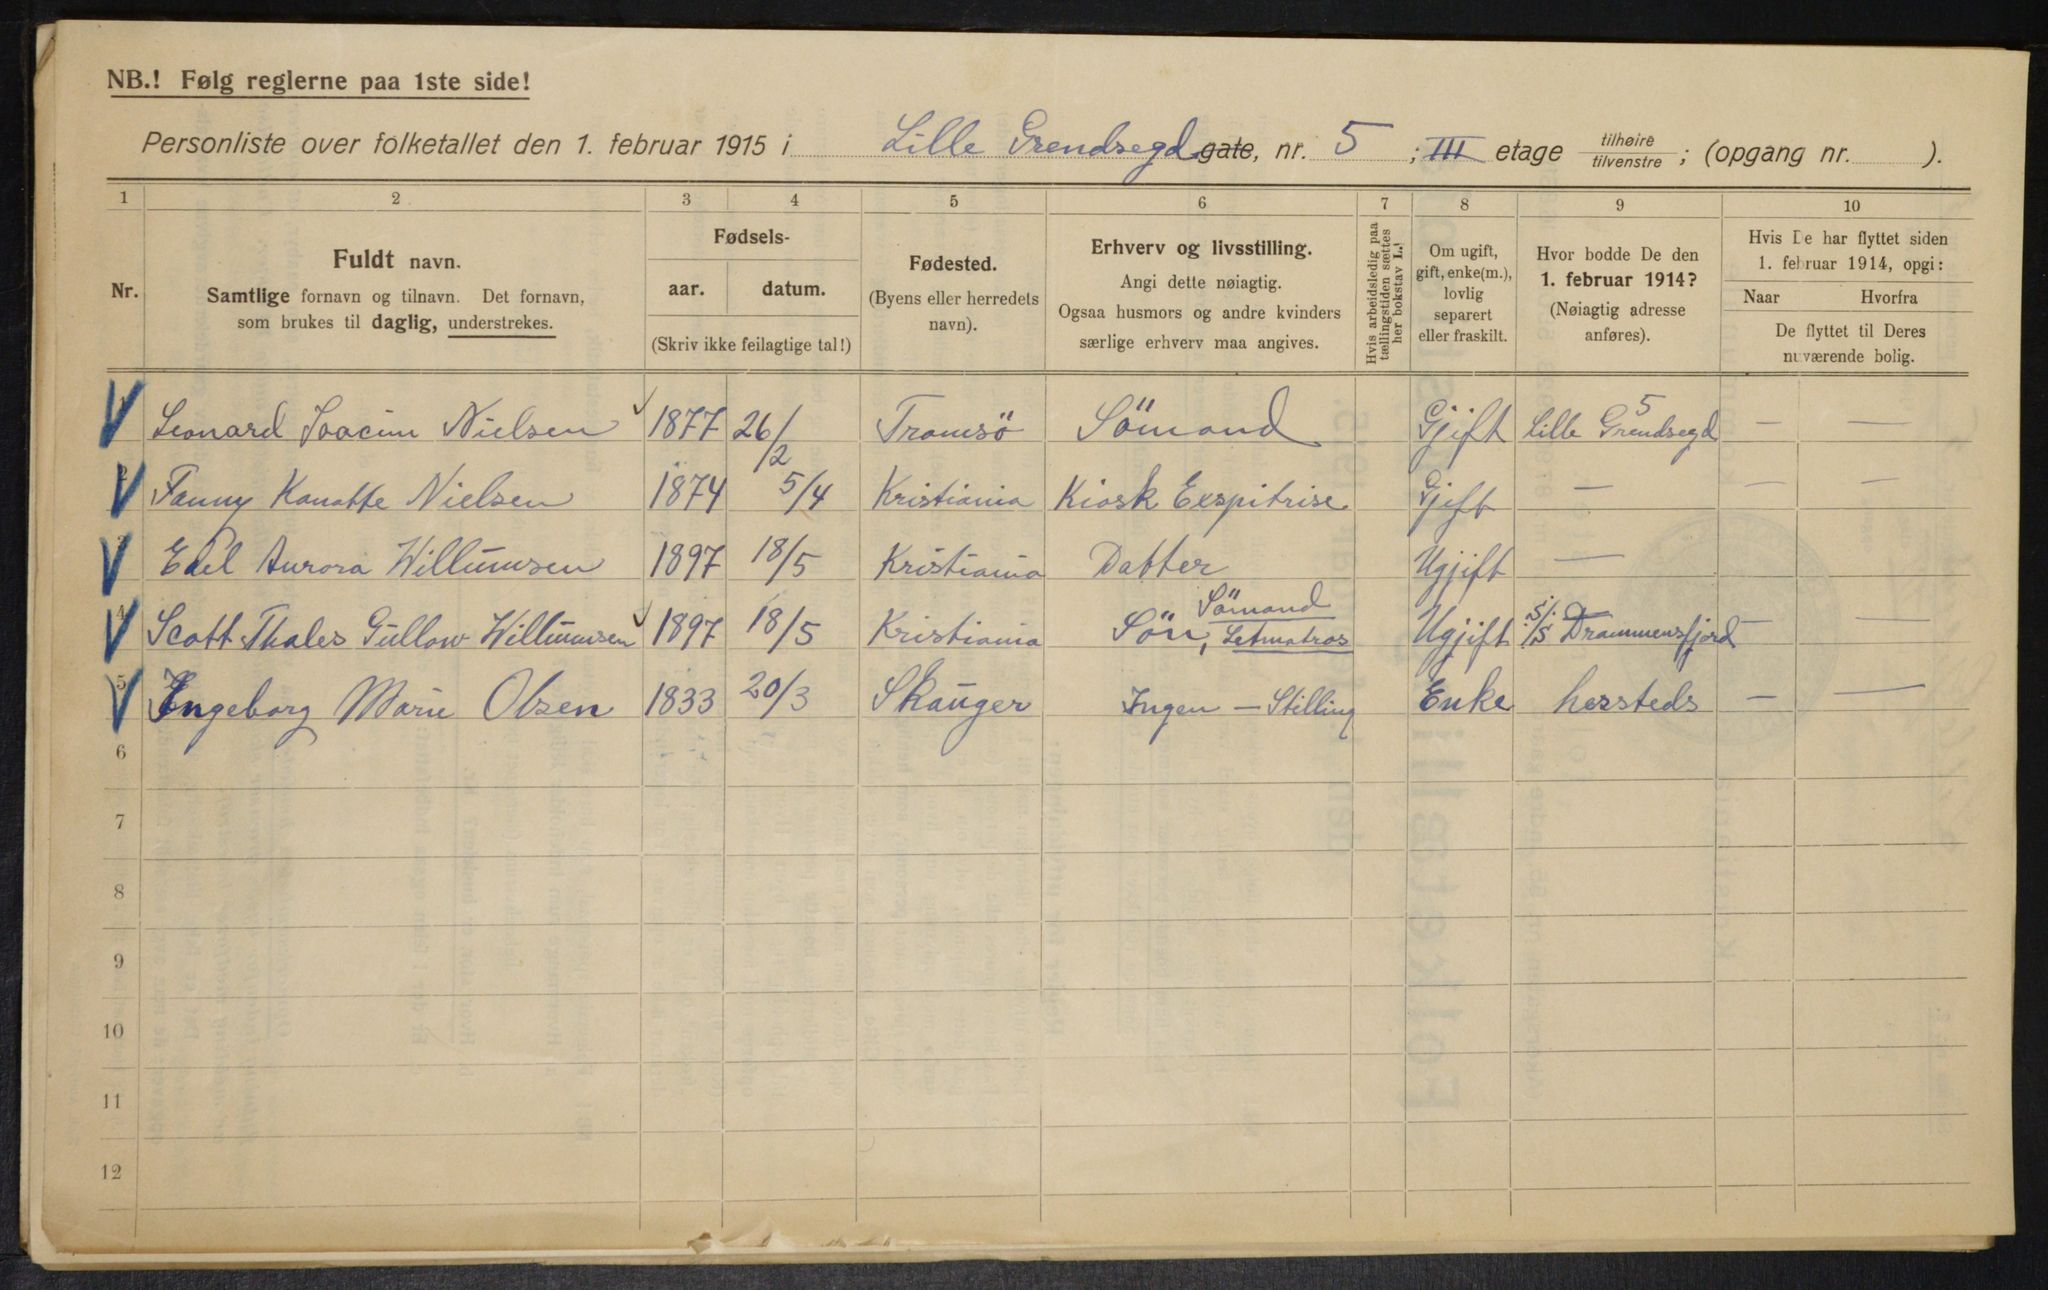 NB.! Følg reglerne paa 1ste side!
Personliste over folketallet den 1. februar 1915 i Lille Grendsegd gate, nr. 5 ; III etage tilhøire / tilvenstre ; (opgang nr. ).
1 2 3 4 5 6 7 8 9 10
Nr.
Fuldt navn.
Samtlige fornavn og tilnavn. Det fornavn,
som brukes til daglig, understrekes.
Fødsels-
aar. datum.
(Skriv ikke feilagtige tal!)
Fødested.
(Byens eller herredets
navn).
Erhverv og livsstilling.
Angi dette nøiagtig.
Ogsaa husmors og andre kvinders
særlige erhverv maa angives.
Hvis arbeidsledig paa
tællingstiden sættes
her bokstav L.!
Om ugift,
gift, enke(m.),
lovlig
separert
eller fraskilt.
Hvor bodde De den
1. februar 1914?
(Nøiagtig adresse
anføres).
Hvis De har flyttet siden
1. februar 1914, opgi:
Naar Hvorfra
De flyttet til Deres
nuværende bolig.
Leonard Joacim Nielsen 1877 26/2 Tromsö Sömand Gjift Lille Grendsegd 5 — —
2 Fanny Kanatte Nielsen 1874 5/4 Kristiania Kiosk Exspitrise Gjift — — —
3 Edel Aurora Willumsen 1897 18/5 Kristiania Datter Ugjift —
4 Scott Thales Gullow Willumsen 1897 18/5 Kristiania Sön, Sömand Letmatros Ugjift S/S Drammensfjord — —
5 Engeborg Marie Olsen 1833 20/3 Skauger Ingen — Stilling Enke hersteds — —
6
7
8
9
10
11
12